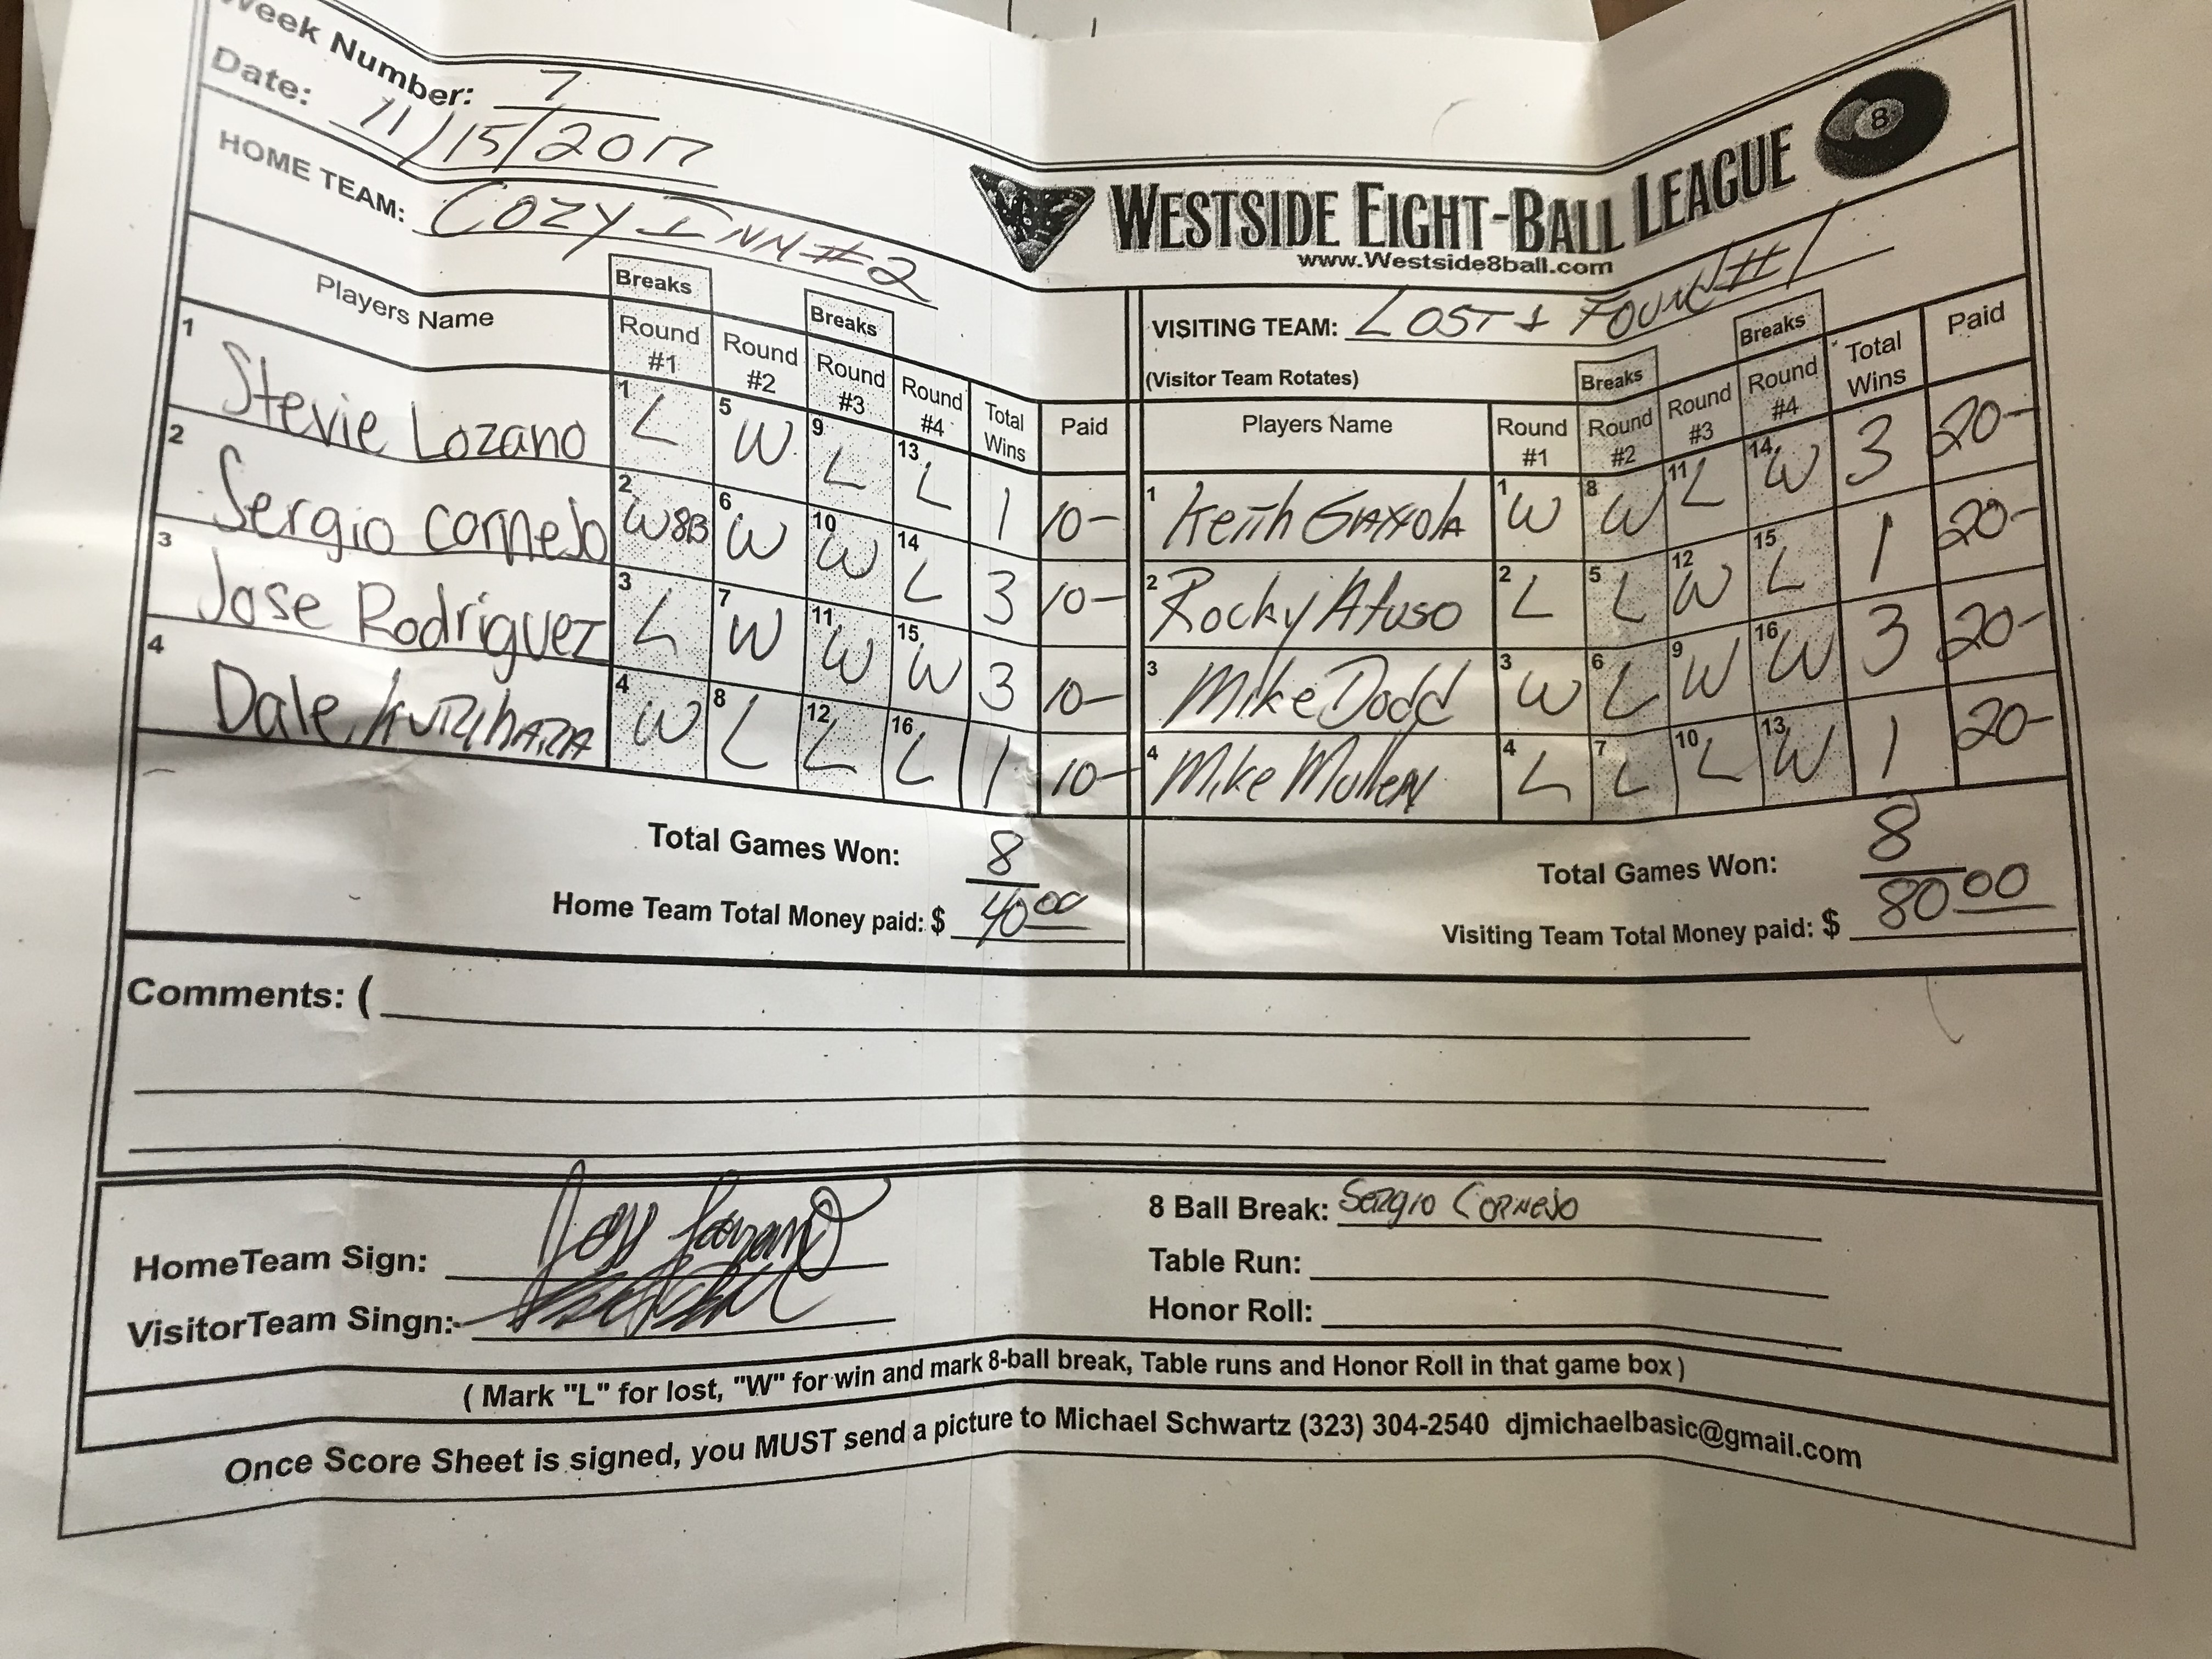 Week Number: 7
Date: 11/15/2017
HOME TEAM: COZY INN #2
WESTSIDE EIGHT-BALL LEAGUE 8
www.Westside8ball.com
VISITING TEAM: LOST & FOUND #1
(Visitor Team Rotates)
Players Name Breaks Round #1 Round #2 Breaks Round #3 Round #4 Total Wins Paid
1 Stevie Lozano 1 L 5 W 9 L 13 L 1 10-
2 Sergio Cornejo 2 W8B 6 W 10 W 14 L 3 10-
3 Jose Rodriguez 3 L 7 W 11 W 15 W 3 10-
4 Dale Kurihara 4 W 8 L 12 L 16 L 1 10-
Total Games Won: 8
Home Team Total Money paid: $ 40 00
Players Name Round #1 Breaks Round #2 Round #3 Breaks Round #4 Total Wins Paid
1 Keith Gaxiola 1 W 8 W 11 L 14 W 3 20-
2 Rocky Afuso 2 L 5 L 12 W 15 L 1 20-
3 Mike Dodd 3 W 6 L 9 W 16 W 3 20-
4 Mike Mullen 4 L 7 L 10 L 13 W 1 20-
Total Games Won: 8
Visiting Team Total Money paid: $ 80 00
Comments: (
HomeTeam Sign:
VisitorTeam Singn:
8 Ball Break: Sergio Cornejo
Table Run:
Honor Roll:
( Mark "L" for lost, "W" for win and mark 8-ball break, Table runs and Honor Roll in that game box )
Once Score Sheet is signed, you MUST send a picture to Michael Schwartz (323) 304-2540 djmichaelbasic@gmail.com